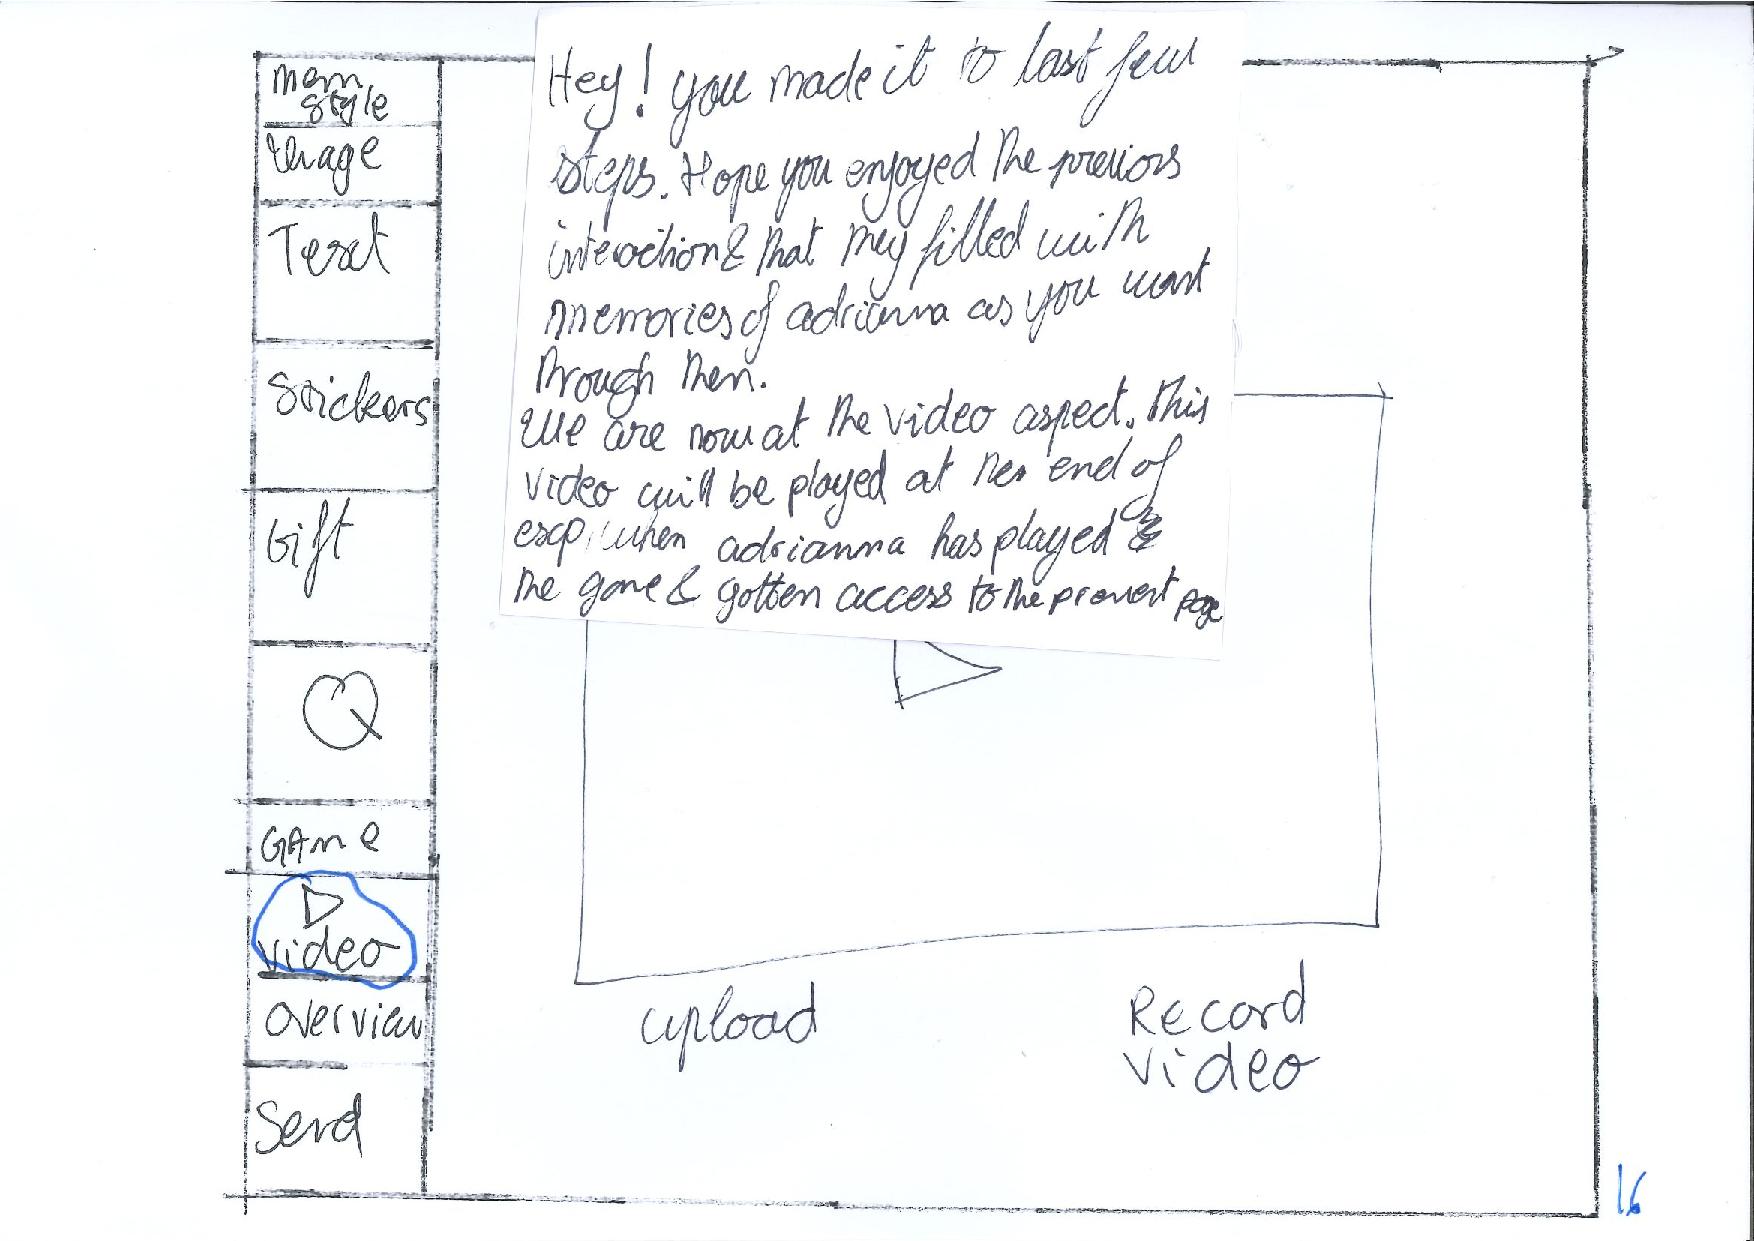 mem
style
image
Text
Stickers
Gift
GAme
video
overview
Send
Hey! you made it to last few
steps. Hope you enjoyed the previors
interaction & that they filled with
memories of adrianna as you want
through them.
We are now at the video aspect. This
video will be played at the end of
exp, when adrianna has played
the game & gotten access to the present page
upload
Record
video
16